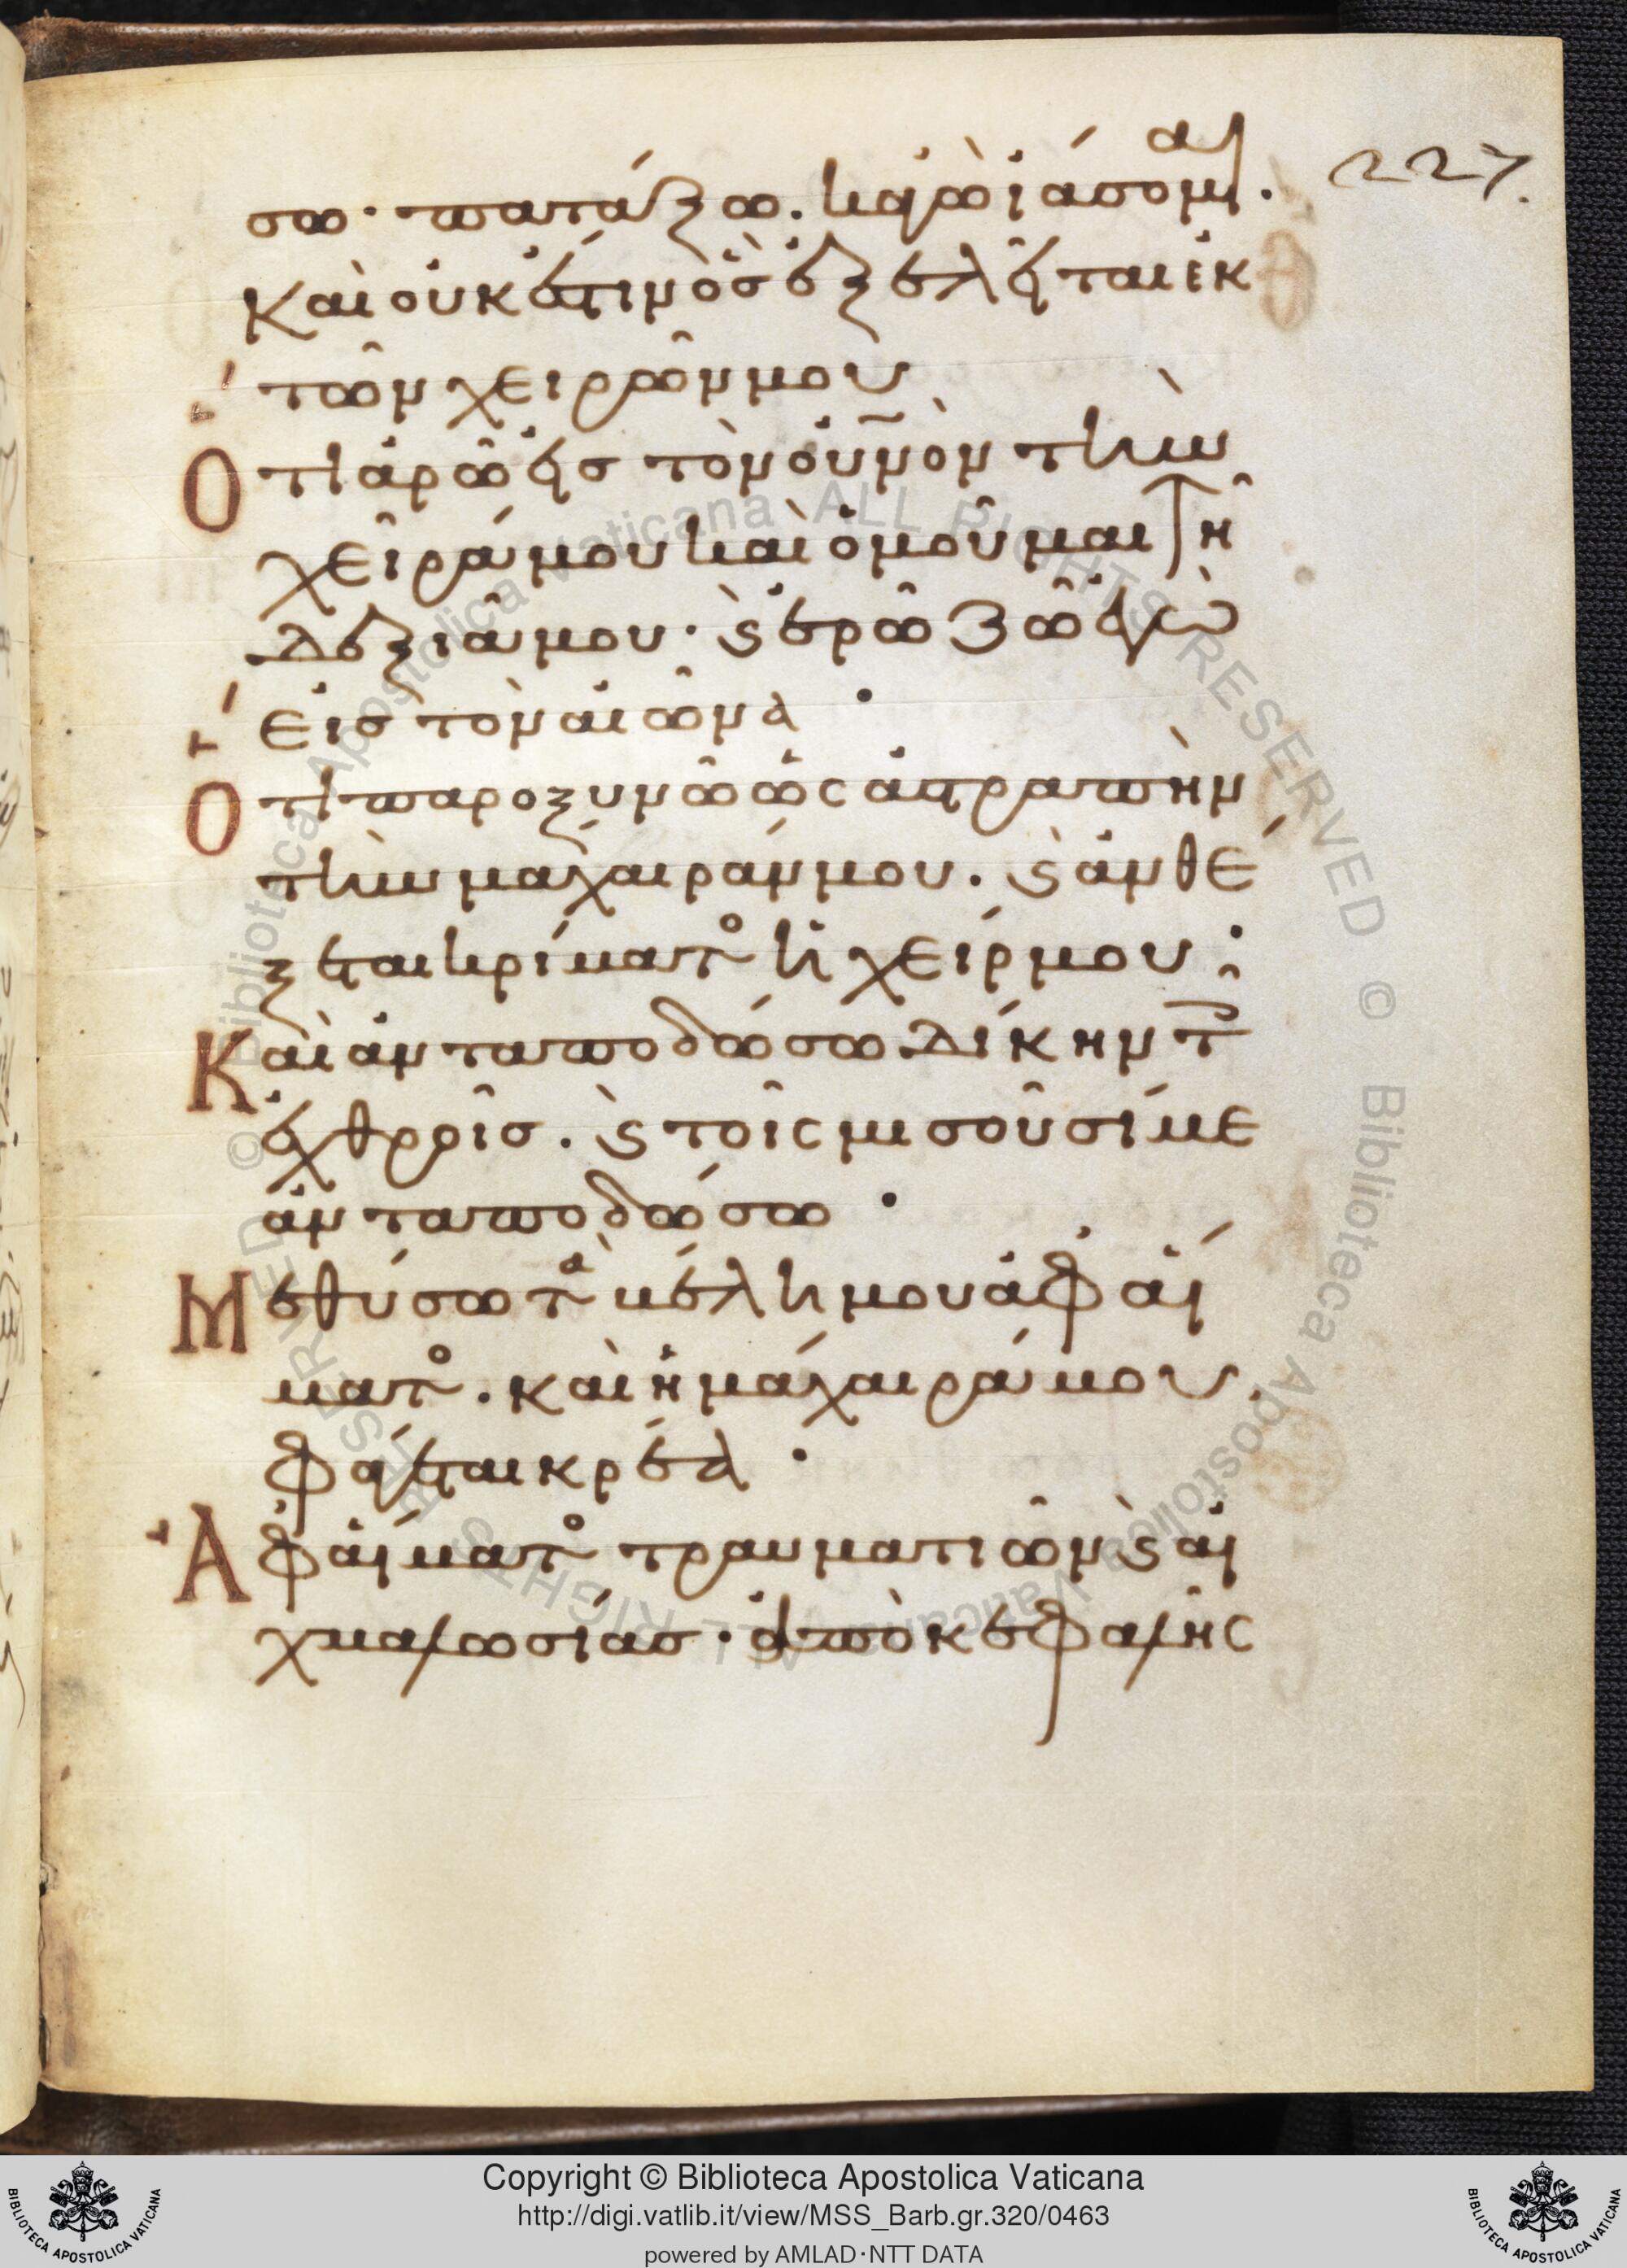 227.
σω· πατάξω. κἀγὼ ἰάσομαι.
καὶ οὐκ ἔστιν ὃς ἐξελεῖται ἐκ
τῶν χειρῶν μου
Ὅτι ἀρῶ εἰς τὸν οὐνὸν τὴν
χεῖρά μου καὶ ὀμοῦμαι τῆ
δεξιᾶ μου· ϗ ἐρῶ ζῶ ἐγὼ
εἰς τὸν αἰῶνα·
Ὅτι παροξυνῶ ὡς ἀστραπὴν
τὴν μάχαιράν μου. ϗ ἀνθέ
ξεται κρίματος ἡ χείρ μου:
Καὶ ἀνταποδώσω δίκην τοῖς
ἐχθροῖς. ϗ τοῖς μισοῦσί με
ἀνταποδώσω·
Μεθύσω τὰ βέλη μου ἀφ αἵ
ματος. καὶ ἡ μάχαιρά μου.
φάγεται κρέα·
Ἀφ αἵματος τραυματιῶν ϗ αἰ
χμαλωσίας· ἀπὸ κεφαλῆς
Copyright © Biblioteca Apostolica Vaticana
http://digi.vatlib.it/view/MSS_Barb.gr.320/0463
powered by AMLAD·NTT DATA